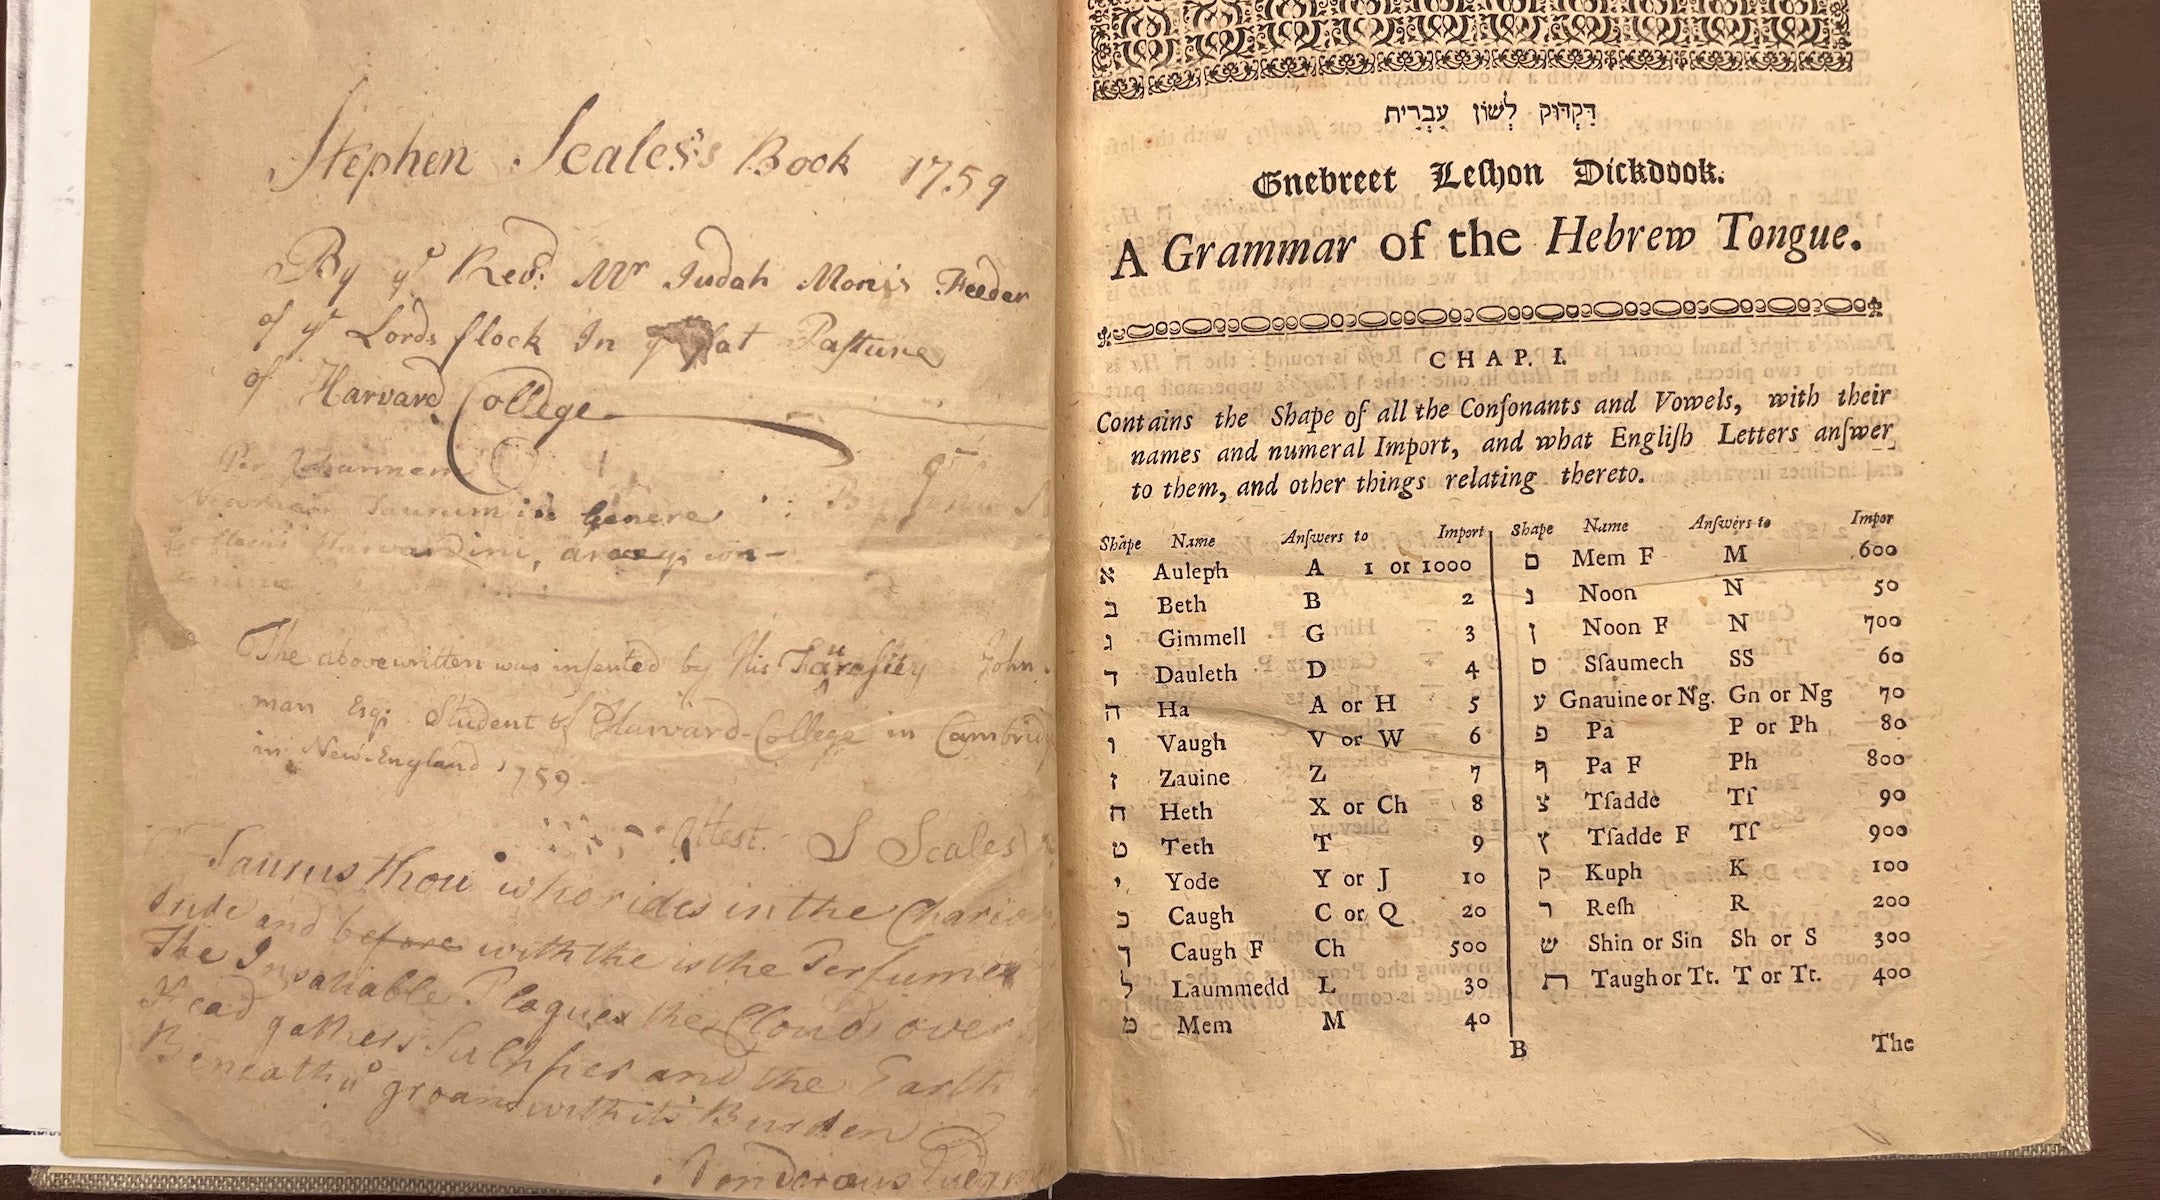 Stephen Scales's Book 1759
By yͤ Revᵈ: Mʳ Judah Monis Feeder
of yͤ Lords flock In fat Pasture
of Harvard College
Per
Taurum in Genere
Harvardini,
The abovewritten was inserted by His John
man Esq; Student of Harvard-College in Cambridg
in New-England 1759
Attest. S Scales
Taurus thou who rides in the Chario
and before with the is the Perfume
The Insatiable Plagues the Clouds over
Head gathers Sulpher and the Earth
Beneath groans with its Burden
Ponderous
דִּקְדּוּק לְשׁוֹן עִבְרִית
Gnebreet Leſhon Dickdook.
A Grammar of the Hebrew Tongue.
CHAP. I.
Contains the Shape of all the Conſonants and Vowels, with their
names and numeral Import, and what Engliſh Letters anſwer
to them, and other things relating thereto.
Shape Name Anſwers to Import
א Auleph A 1 or 1000
ב Beth B 2
ג Gimmell G 3
ד Dauleth D 4
ה Ha A or H 5
ו Vaugh V or W 6
ז Zauine Z 7
ח Heth X or Ch 8
ט Teth T 9
י Yode Y or J 10
כ Caugh C or Q 20
ך Caugh F Ch 500
ל Laummedd L 30
מ Mem M 40
Shape Name Anſwers to Impor
ם Mem F M 600
נ Noon N 50
ן Noon F N 700
ס Sſaumech SS 60
ע Gnauine or Ng. Gn or Ng 70
פ Pa P or Ph 80
ף Pa F Ph 800
צ Tſadde Tſ 90
ץ Tſadde F Tſ 900
ק Kuph K 100
ר Reſh R 200
ש Shin or Sin Sh or S 300
ת Taugh or Tt. T or Tt. 400
B The